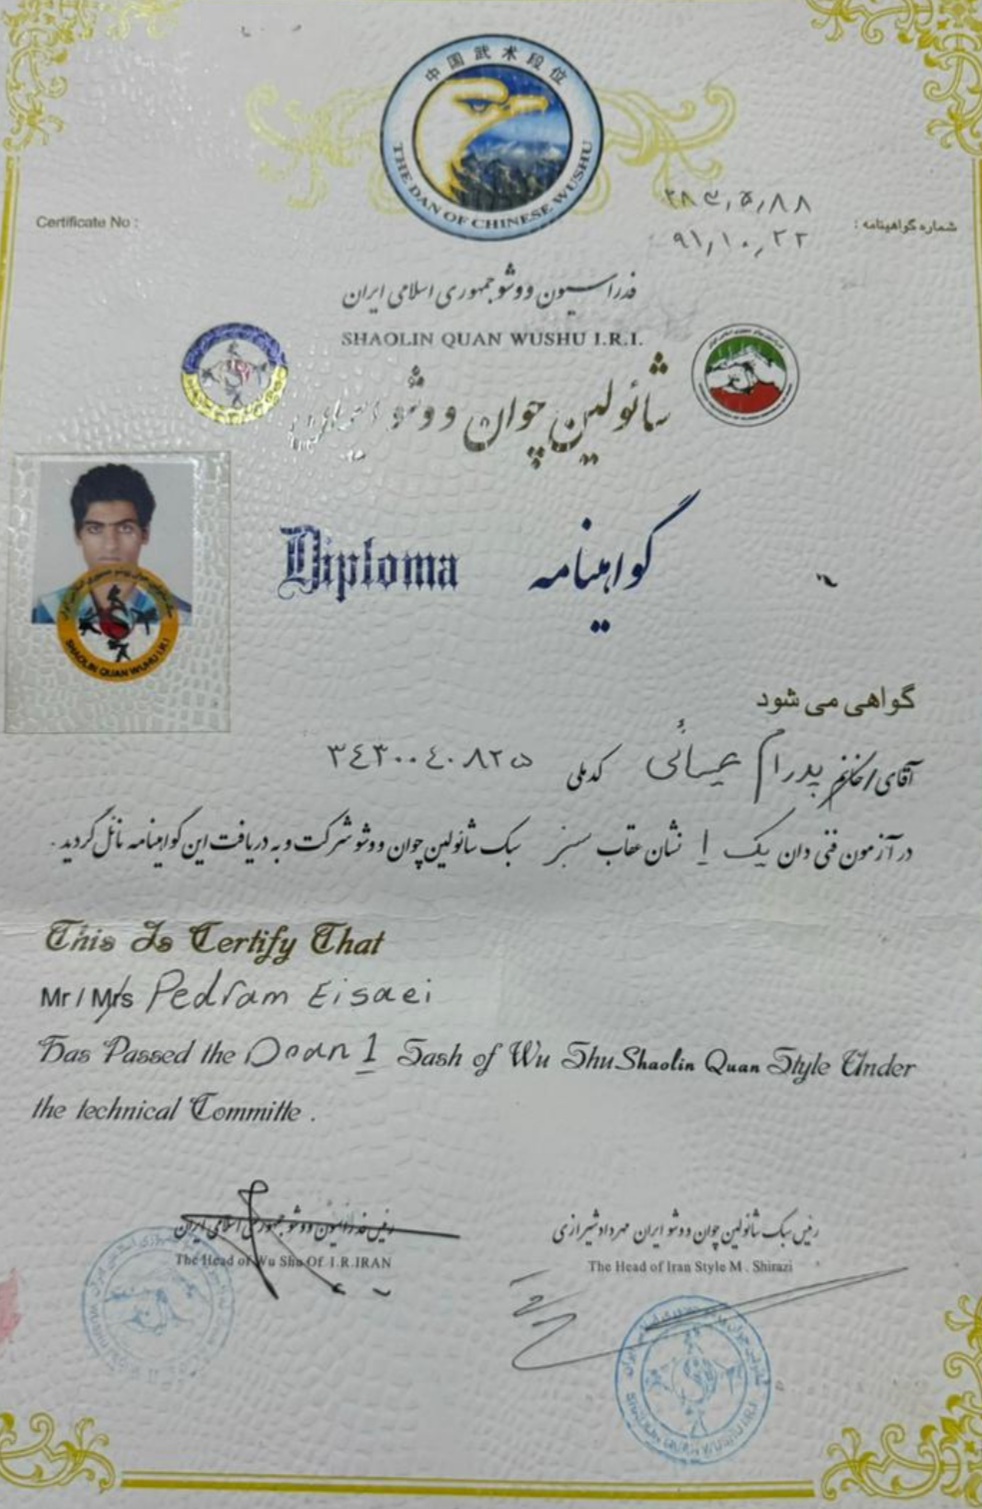 中国武术段位
THE DAN OF CHINESE WUSHU
Certificate No :
شماره گواهینامه :
۹۱,۱۰,۲۲
فدراسیون ووشو جمهوری اسلامی ایران
SHAOLIN QUAN WUSHU I.R.I.
شائولین چوان ووشو
Diploma گواهینامه
SHAOLIN QUAN WUHU I.R.I
گواهی می شود
آقای/خانم پدرام عیسائی کد ملی ۳٤۳۰۰٤۰۸۲۵
در آزمون فنی دان یک 1 نشان عقاب سبز سبک شائولین چوان ووشو شرکت و به دریافت این گواهینامه نائل گردید .
This Is Certify That
Mr / Mrs Pedram Eisaei
Has Passed the Doan 1 Sash of Wu Shu Shaolin Quan Style Under
the technical Committe .
رئیس فدراسیون ووشو جمهوری اسلامی ایران
The Head of Wu Shu Of I.R.IRAN
رئیس سبک شائولین چوان ووشو ایران مهرداد شیرازی
The Head of Iran Style M . Shirazi
SHAOLIN QUAN WUSHU I.R.I